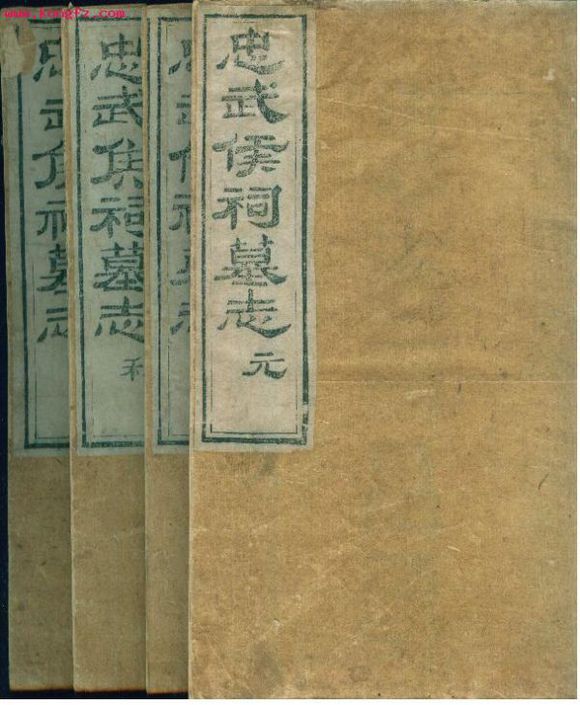 www.kongfz.com
忠武侯祠墓志 元
忠武侯祠墓志
忠武侯祠墓志 利
忠武侯祠墓志